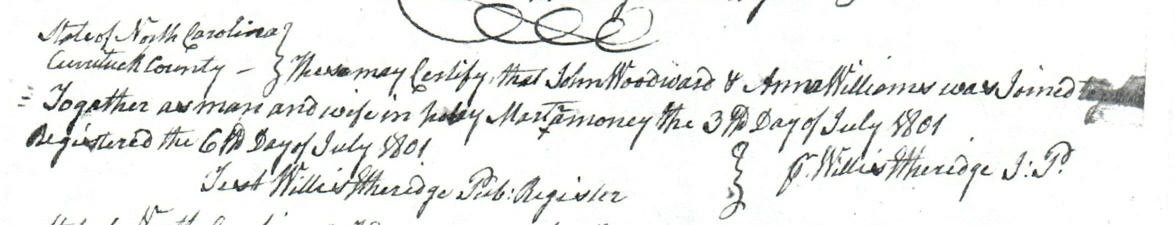 State of North Carolina
Currituck County – These may Certify, that John Woodward & Anna Williams was Joined
Together as man and wife in holy Martamoney the 3rd Day of July 1801
Registered the 6th Day of July 1801
pr. Willis Etheridge J:P.
Test Willis Etheridge Pub: Register
State of North